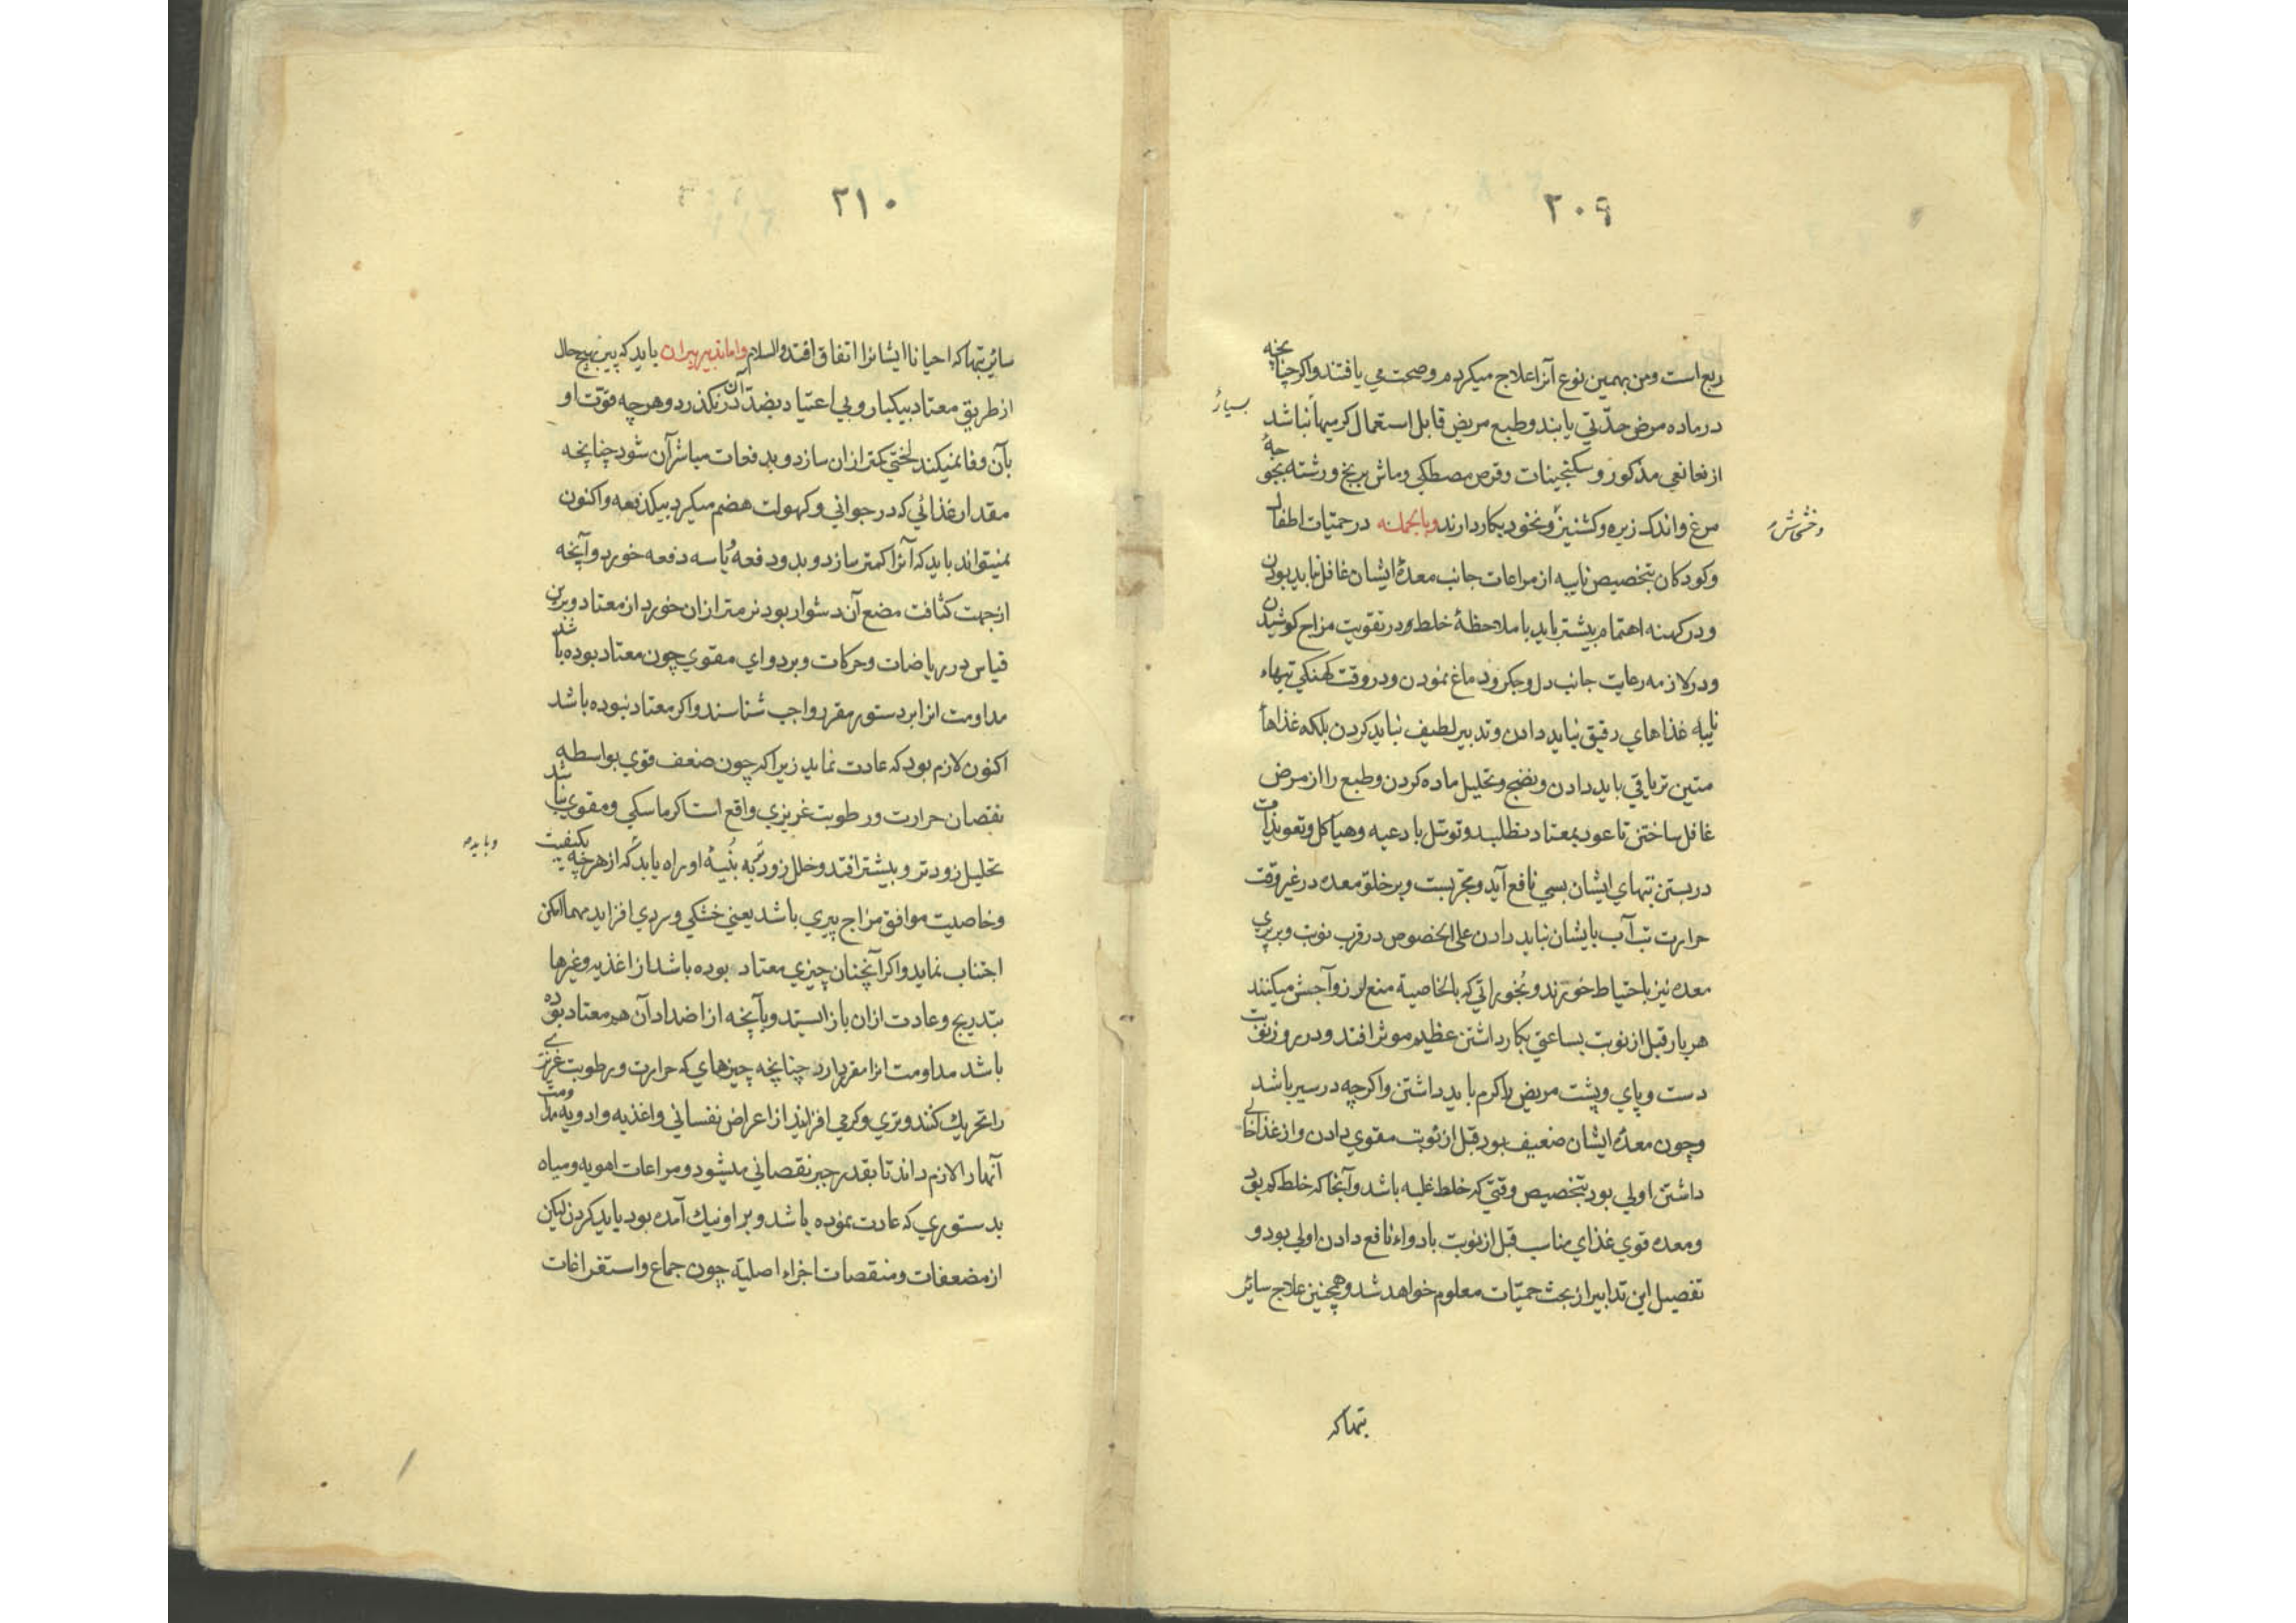 ۲۰۹
ربع است ومن بهمین نوع آنرا علاج میکردم وصحت می یافتند واکر چنانچه
در ماده مرض حدّتی یابند وطبع مریض قابل استعمال کرمیها نباشد
بسیار
از نعانعی مذکور وسکنجبینات وقرص مصطکی وماش برنج ورشته بجوجهٔ
مرغ واندک زیره وکشنیز ونخود بکار دارند وبالجمله در حمیّات اطفال
وخشخاش
وکودکان بتخصیص نایبه از مراعات جانب معدهٔ ایشان غافل نباید بودن
ودر کهنه اهتمام بیشتر باید با ملاحظهٔ خلط ودر تقویت مزاج کوشیدن
ودر لازمه رعایت جانب دل وجکر ودماغ نمودن ودر وقت کهنکی تبهاء
نایبه غذاهای رقیق نباید دادن وتدبیر لطیف نباید کردن بلکه غذاهأ
متین تریاقی باید دادن ونضج وتحلیل ماده کردن وطبع را از مرض
غافل ساختن تا عود بمعتاد نطلبد وتوسّل بادعیه وهیاکل وتعویذات
در بستن تبهای ایشان بسی نافع آید ومجرّبست وبر خلوّ معده در غیر وقت
حرارت تب آب بایشان نباید دادن علی الخصوص در قرب نوبت وبر پری
معده نیز باحتیاط خورند وبخوراتی که بالخاصیة منع لرز وآجش میکنند
هر بار قبل از نوبت بساعتی بکار داشتن عظیم موثر افتد ودر روز نوبت
دست وپای وپشت مریض را کرم باید داشتن واکرچه در سیر باشد
وچون معدهٔ ایشان ضعیف بود قبل از نوبت مقوی دادن واز غذا خالی
داشتن اولی بود بتخصیص وقتی که خلط غلبه باشد وآنجا که خلط کم بود
ومعده قوی غذای مناسب قبل از نوبت با دواء نافع دادن اولی بود و
تفصیل این تدابیر از بحث حمیّات معلوم خواهد شد وهمچنین علاج سائر
تبها که
۲۱۰
سائر تبها که احیانا ایشانرا اتفاق افتد والسلام واما تدبیر پیران باید که پیر بهیچ حال
از طریق معتاد بیکبار وبی اعتیاد بضدّ آن در نکذرد وهرچه قوّت او
بآن وفا نمیکند لختی کمتر ازان سازد وبدفعات مباشر آن شود چنانچه
مقدار غذائی که در جوانی وکهولت هضم میکرد بیکدفعه واکنون
نمیتواند باید که آنرا کمتر سازد وبدو دفعه ویا سه دفعه خورد وآنچه
از جهت کثافت مضغ آن دشوار بود نرمتر ازان خورد از معتاد وبرین
قیاس در ریاضات وحرکات وبر دوای مقوی چون معتاد بوده باشد
مداومت انرا بر دستور مقرر واجب شناسند واکر معتاد نبوده باشد
اکنون لازم بود که عادت نماید زیرا که چون ضعف قوی بواسطه
نقصان حرارت ورطوبت غریزی واقع است اکر ماسکی ومقوی نباشد
تحلیل زودتر وبیشتر افتد وخلل زودتر به بُنیهٔ او راه یابد که از هرچه بکیفیت
وباید
وخاصیت موافق مزاج پیری باشد یعنی خشکی وسردی افزاید مهما امکن
اجتناب نماید واکر آنچنان چیزی معتاد بوده باشد از اغذیه وغیرها
بتدریج وعادت ازان باز ایستد وبآنچه از اضداد آن هم معتاد بوده
باشد مداومت انرا مقرر دارد چنانچه چیزهای که حرارت ورطوبت غریزی
را تحریک کنند وتری وکرمی افزایند از اعراض نفسانی واغذیه وادویه مداومت
آنها را لازم داند تا بقدر جبر نقصانی میشود ومراعات اهویه ومیاه
بدستوری که عادت نموده باشد وبر او نیک آمده بود باید کردن لیکن
از مضعفات ومنقصات اجزاء اصلیّه چون جماع واستفراغات